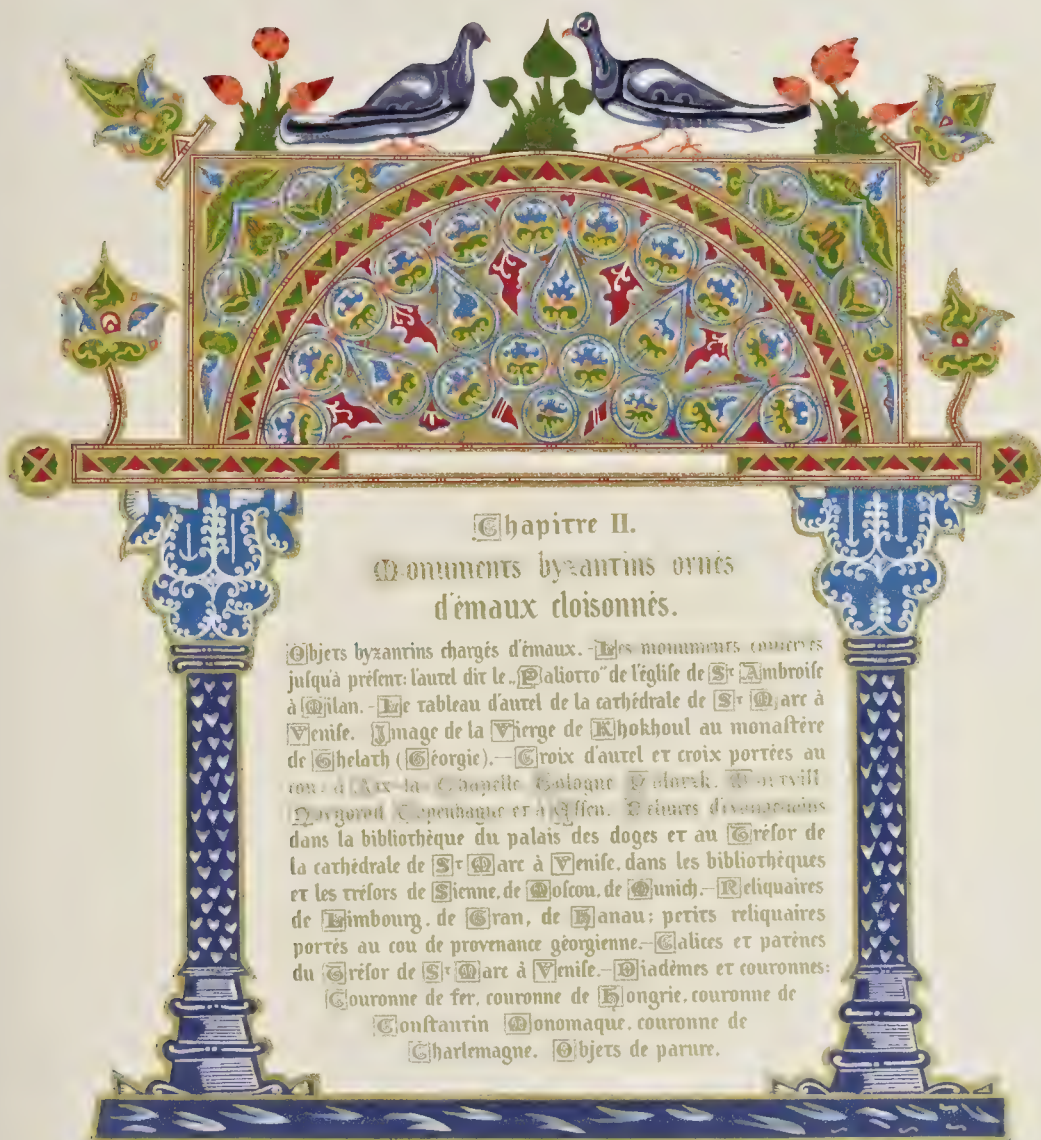 Chapitre II.
Monuments byzantins ornés
d'émaux cloisonnés.
Objets byzantins chargés d'émaux. - Les monuments
juſqu'à préſent: l'autel dit le „Paliotto" de l'égliſe de St Ambroiſe
à Milan. - Le tableau d'autel de la cathédrale de St Marc à
Veniſe. Image de la Vierge de Khokhoul au monaſtère
de Ghelath (Géorgie). — Croix d'autel et croix portées au
cou: à Aix-la-Chapelle, Cologne
Copenhague et à
dans la bibliothèque du palais des doges et au Tréſor de
la cathédrale de St Marc à Veniſe, dans les bibliothèques
et les tréſors de Sienne, de Moſcou, de Munich. — Reliquaires
de Limbourg, de Gran, de Hanau: petits reliquaires
portés au cou de provenance géorgienne. — Calices et patènes
du Tréſor de St Marc à Veniſe. — Diadèmes et couronnes:
Couronne de fer, couronne de Hongrie, couronne de
Conſtantin Monomaque, couronne de
Charlemagne. Objets de parure.